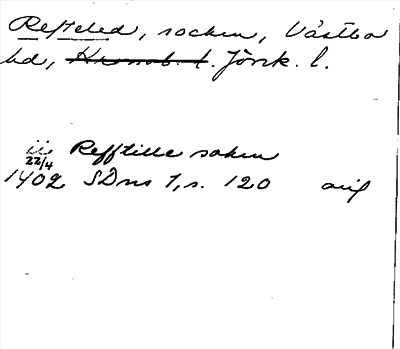 Refteled, socken, Västbo
hd, Kronob. l. Jönk. l.
ii Refftille soken
22/4
1402 SDns 1, s. 120 orig